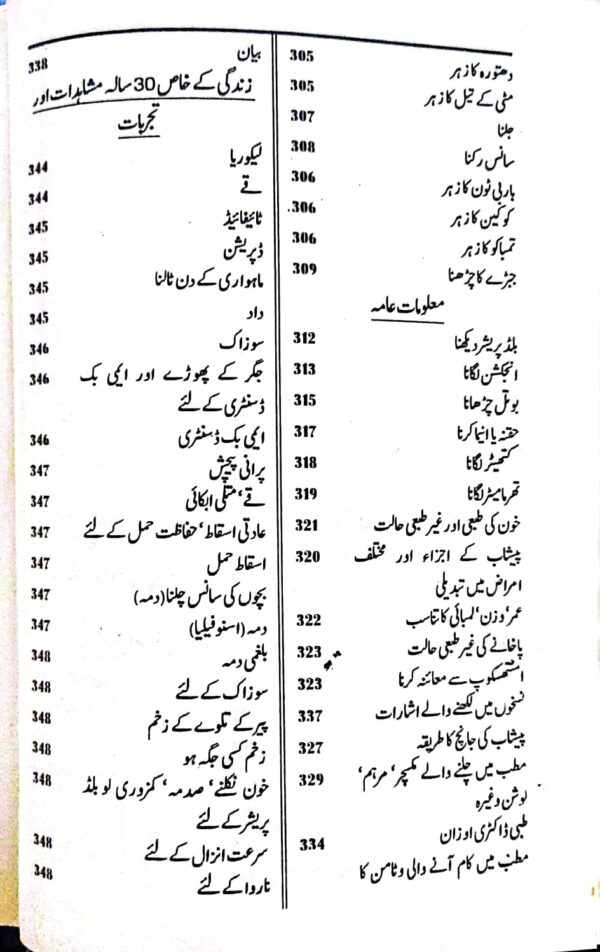 دھتورہ کا زہر 305
مٹی کے تیل کا زہر 305
جلنا 307
سانس رکنا 308
باربی ٹون کا زہر 306
کوکین کا زہر 306
تمباکو کا زہر 306
جبڑے کا چڑھنا 309
معلومات عامہ
بلڈ پریشر دیکھنا 312
انجکشن لگانا 313
بوتل چڑھانا 315
حقنہ یا انیما کرنا 317
کتھیٹر لگانا 318
تھرمامیٹر لگانا 319
خون کی طبعی اور غیر طبعی حالت 321
پیشاب کے اجزاء اور مختلف 320
امراض میں تبدیلی
عمر، وزن، لمبائی کا تناسب 322
پاخانے کی غیر طبعی حالت 323
استھسکوپ سے معائنہ کرنا 323
نسخوں میں لکھنے والے اشارات 337
پیشاب کی جانچ کا طریقہ 327
مطب میں چلنے والے مکسچر، مرہم، 329
لوشن وغیرہ
طبی ڈاکٹری اوزان 334
مطب میں کام آنے والی وٹامن کا
بیان 338
زندگی کے خاص 30 سالہ مشاہدات اور
تجربات
لیکوریا 344
قے 344
ٹائیفائیڈ 345
ڈپریشن 345
ماہواری کے دن ٹالنا 345
داد 345
سوزاک 346
جگر کے پھوڑے اور ایمی بک 346
ڈسنٹری کے لئے
ایمی بک ڈسنٹری 346
پرانی پیچش 347
قے، متلی ابکائی 347
عادتی اسقاط، حفاظت حمل کے لئے 347
اسقاط حمل 347
بچوں کی سانس چلنا (دمہ) 347
دمہ (اسنوفیلیا) 347
بلغمی دمہ 348
سوزاک کے لئے 348
پیر کے تلوے کے زخم 348
زخم کسی جگہ ہو 348
خون نکلنے، صدمہ، کمزوری لو بلڈ 348
پریشر کے لئے
سرعت انزال کے لئے 348
ناروا کے لئے 348